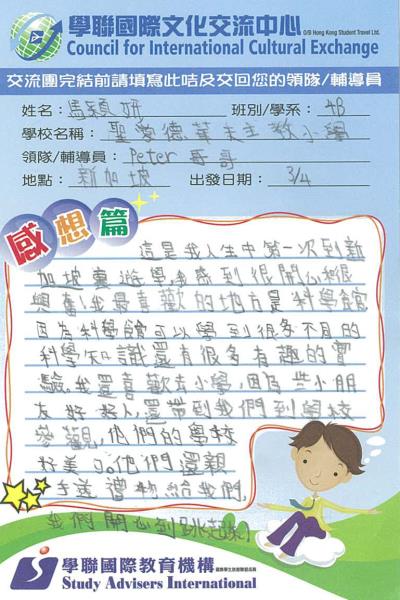 學聯國際文化交流中心
O/B Hong Kong Student Travel Ltd.
Council for International Cultural Exchange
交流團完結前請填寫此咭及交回您的領隊/輔導員
姓名：馬穎妍 班別/學系：4B
學校名稱：聖愛德華天主教小學
領隊/輔導員：Peter 哥哥
地點：新加坡 出發日期：3/4
感想篇
這是我人生中第一次到新
加坡遊學,我感到很開心和很
興奮!我最喜歡的地方是科學館
因為科學館可以學到很多不同的
科學知識還有很多有趣的實
驗。我還喜歡去小學,因為些小朋
友好好人,還帶到我們到學校
參觀,他們的學校
好美。他們還親
手送禮物給我們,
我們開心到跳起來!
學聯國際教育機構
Study Advisers International